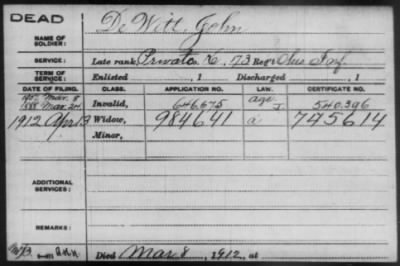 DEAD
NAME OF SOLDIER: De Witt, John
SERVICE: Late rank, Private K, 73 Reg't Ohio Inf
TERM OF SERVICE: Enlisted , 1 Discharged , 1
DATE OF FILING. CLASS. APPLICATION NO. LAW. CERTIFICATE NO.
Mar. 8
1888 Mar. 24 Invalid, 646,675 age 540,396
1912 Apr 13 Widow, 984641 a 745614
Minor,
ADDITIONAL SERVICES:
REMARKS:
Died Mar 8, 1912, at